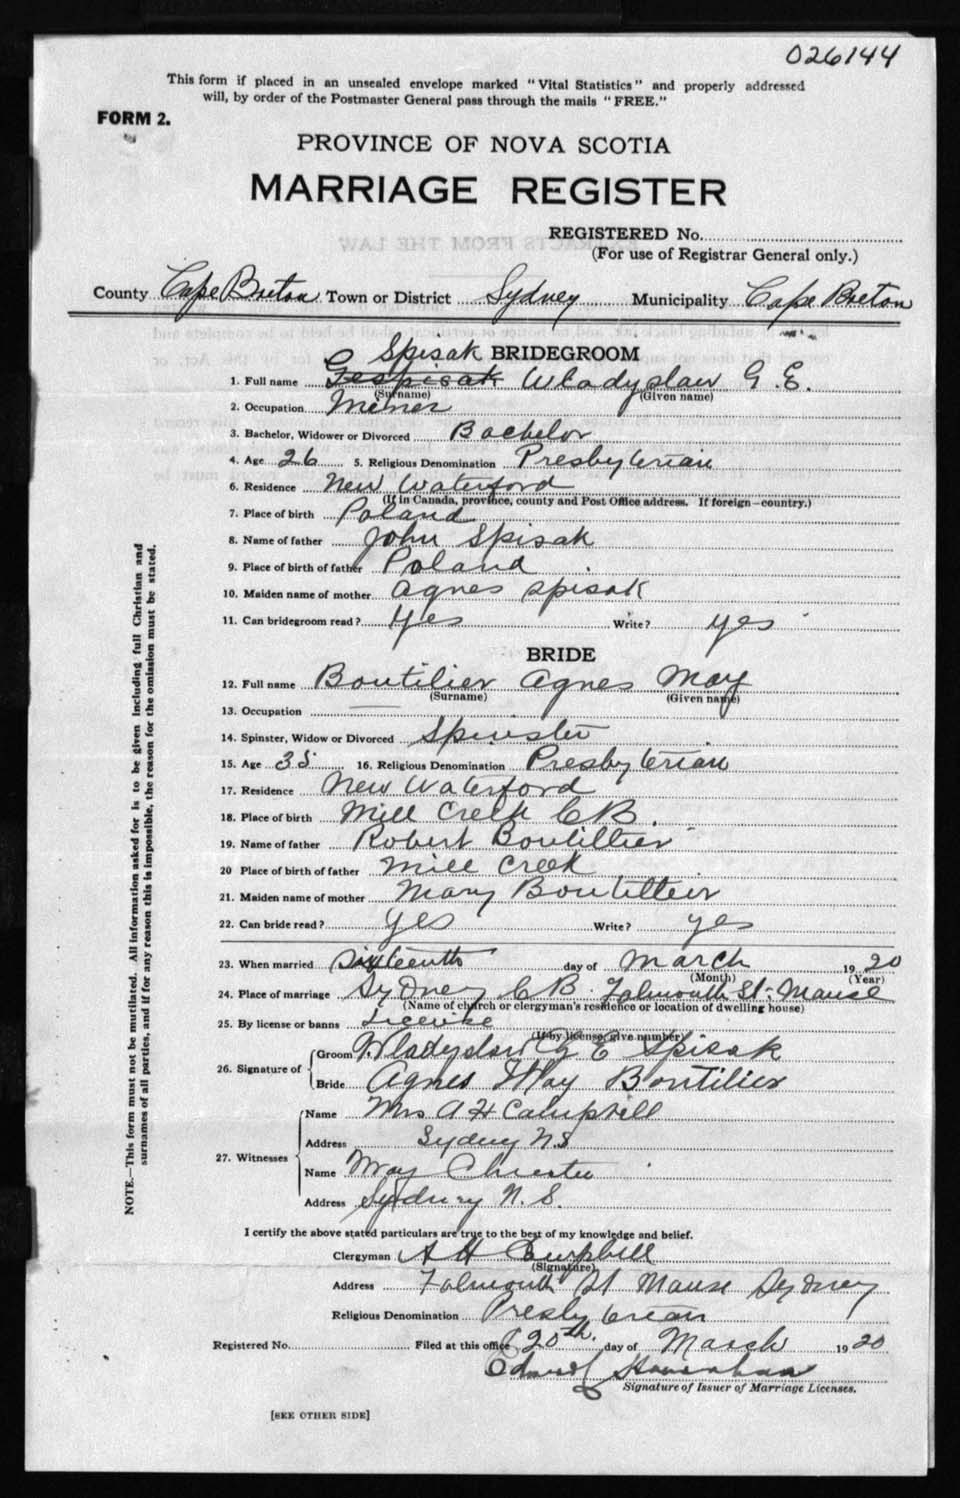 026144
This form if placed in an unsealed envelope marked "Vital Statistics" and properly addressed
will, by order of the Postmaster General pass through the mails "FREE."
FORM 2.
PROVINCE OF NOVA SCOTIA
MARRIAGE REGISTER
REGISTERED No.
(For use of Registrar General only.)
County Cape Breton Town or District Sydney Municipality Cape Breton
Spisak BRIDEGROOM
1. Full name Gespisak Wladyslaw G. E.
(Surname) (Given name)
2. Occupation Miner
3. Bachelor, Widower or Divorced Bachelor
4. Age 26 5. Religious Denomination Presbyterian
6. Residence New Waterford
(If in Canada, province, county and Post Office address. If foreign—country.)
7. Place of birth Poland
8. Name of father John Spisak
9. Place of birth of father Poland
10. Maiden name of mother Agnes Spisak
11. Can bridegroom read? Yes Write? yes
BRIDE
12. Full name Boutilier Agnes May
(Surname) (Given name)
13. Occupation
14. Spinster, Widow or Divorced Spinster
15. Age 35 16. Religious Denomination Presbyterian
17. Residence New Waterford
18. Place of birth Mill Creek C B.
19. Name of father Robert Boutillier
20 Place of birth of father Mill Creek
21. Maiden name of mother Mary Boutillier
22. Can bride read? yes Write? yes
23. When married Sixteenth day of March 1920
(Month) (Year)
24. Place of marriage Sydney C B. Falmouth St. Manse
(Name of church or clergyman's residence or location of dwelling house)
25. By license or banns License
(If by license, give number)
26. Signature of
Groom Wladyslaw G E Spisak
Bride Agnes May Boutilier
27. Witnesses
Name Mrs A H Campbell
Address Sydney N S
Name May
Address Sydney N. S.
I certify the above stated particulars are true to the best of my knowledge and belief.
Clergyman A H Campbell
(Signature)
Address Falmouth St Manse Sydney
Religious Denomination Presbyterian
Registered No. Filed at this office 20th. day of March 1920
Signature of Issuer of Marriage Licenses.
[SEE OTHER SIDE]
NOTE.—This form must not be mutilated. All information asked for is to be given including full Christian and
surnames of all parties, and if for any reason this is impossible, the reason for the omission must be stated.